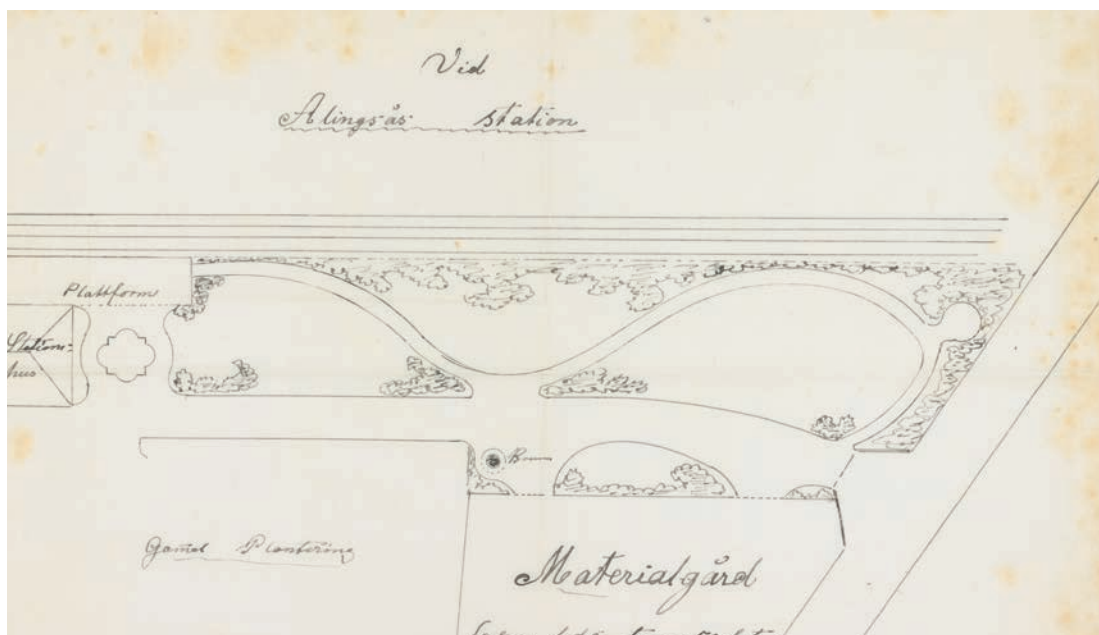 Vid
Alingsås station
Plattform
Stations-
hus
Brunn
Gamal Plantering
Materialgård